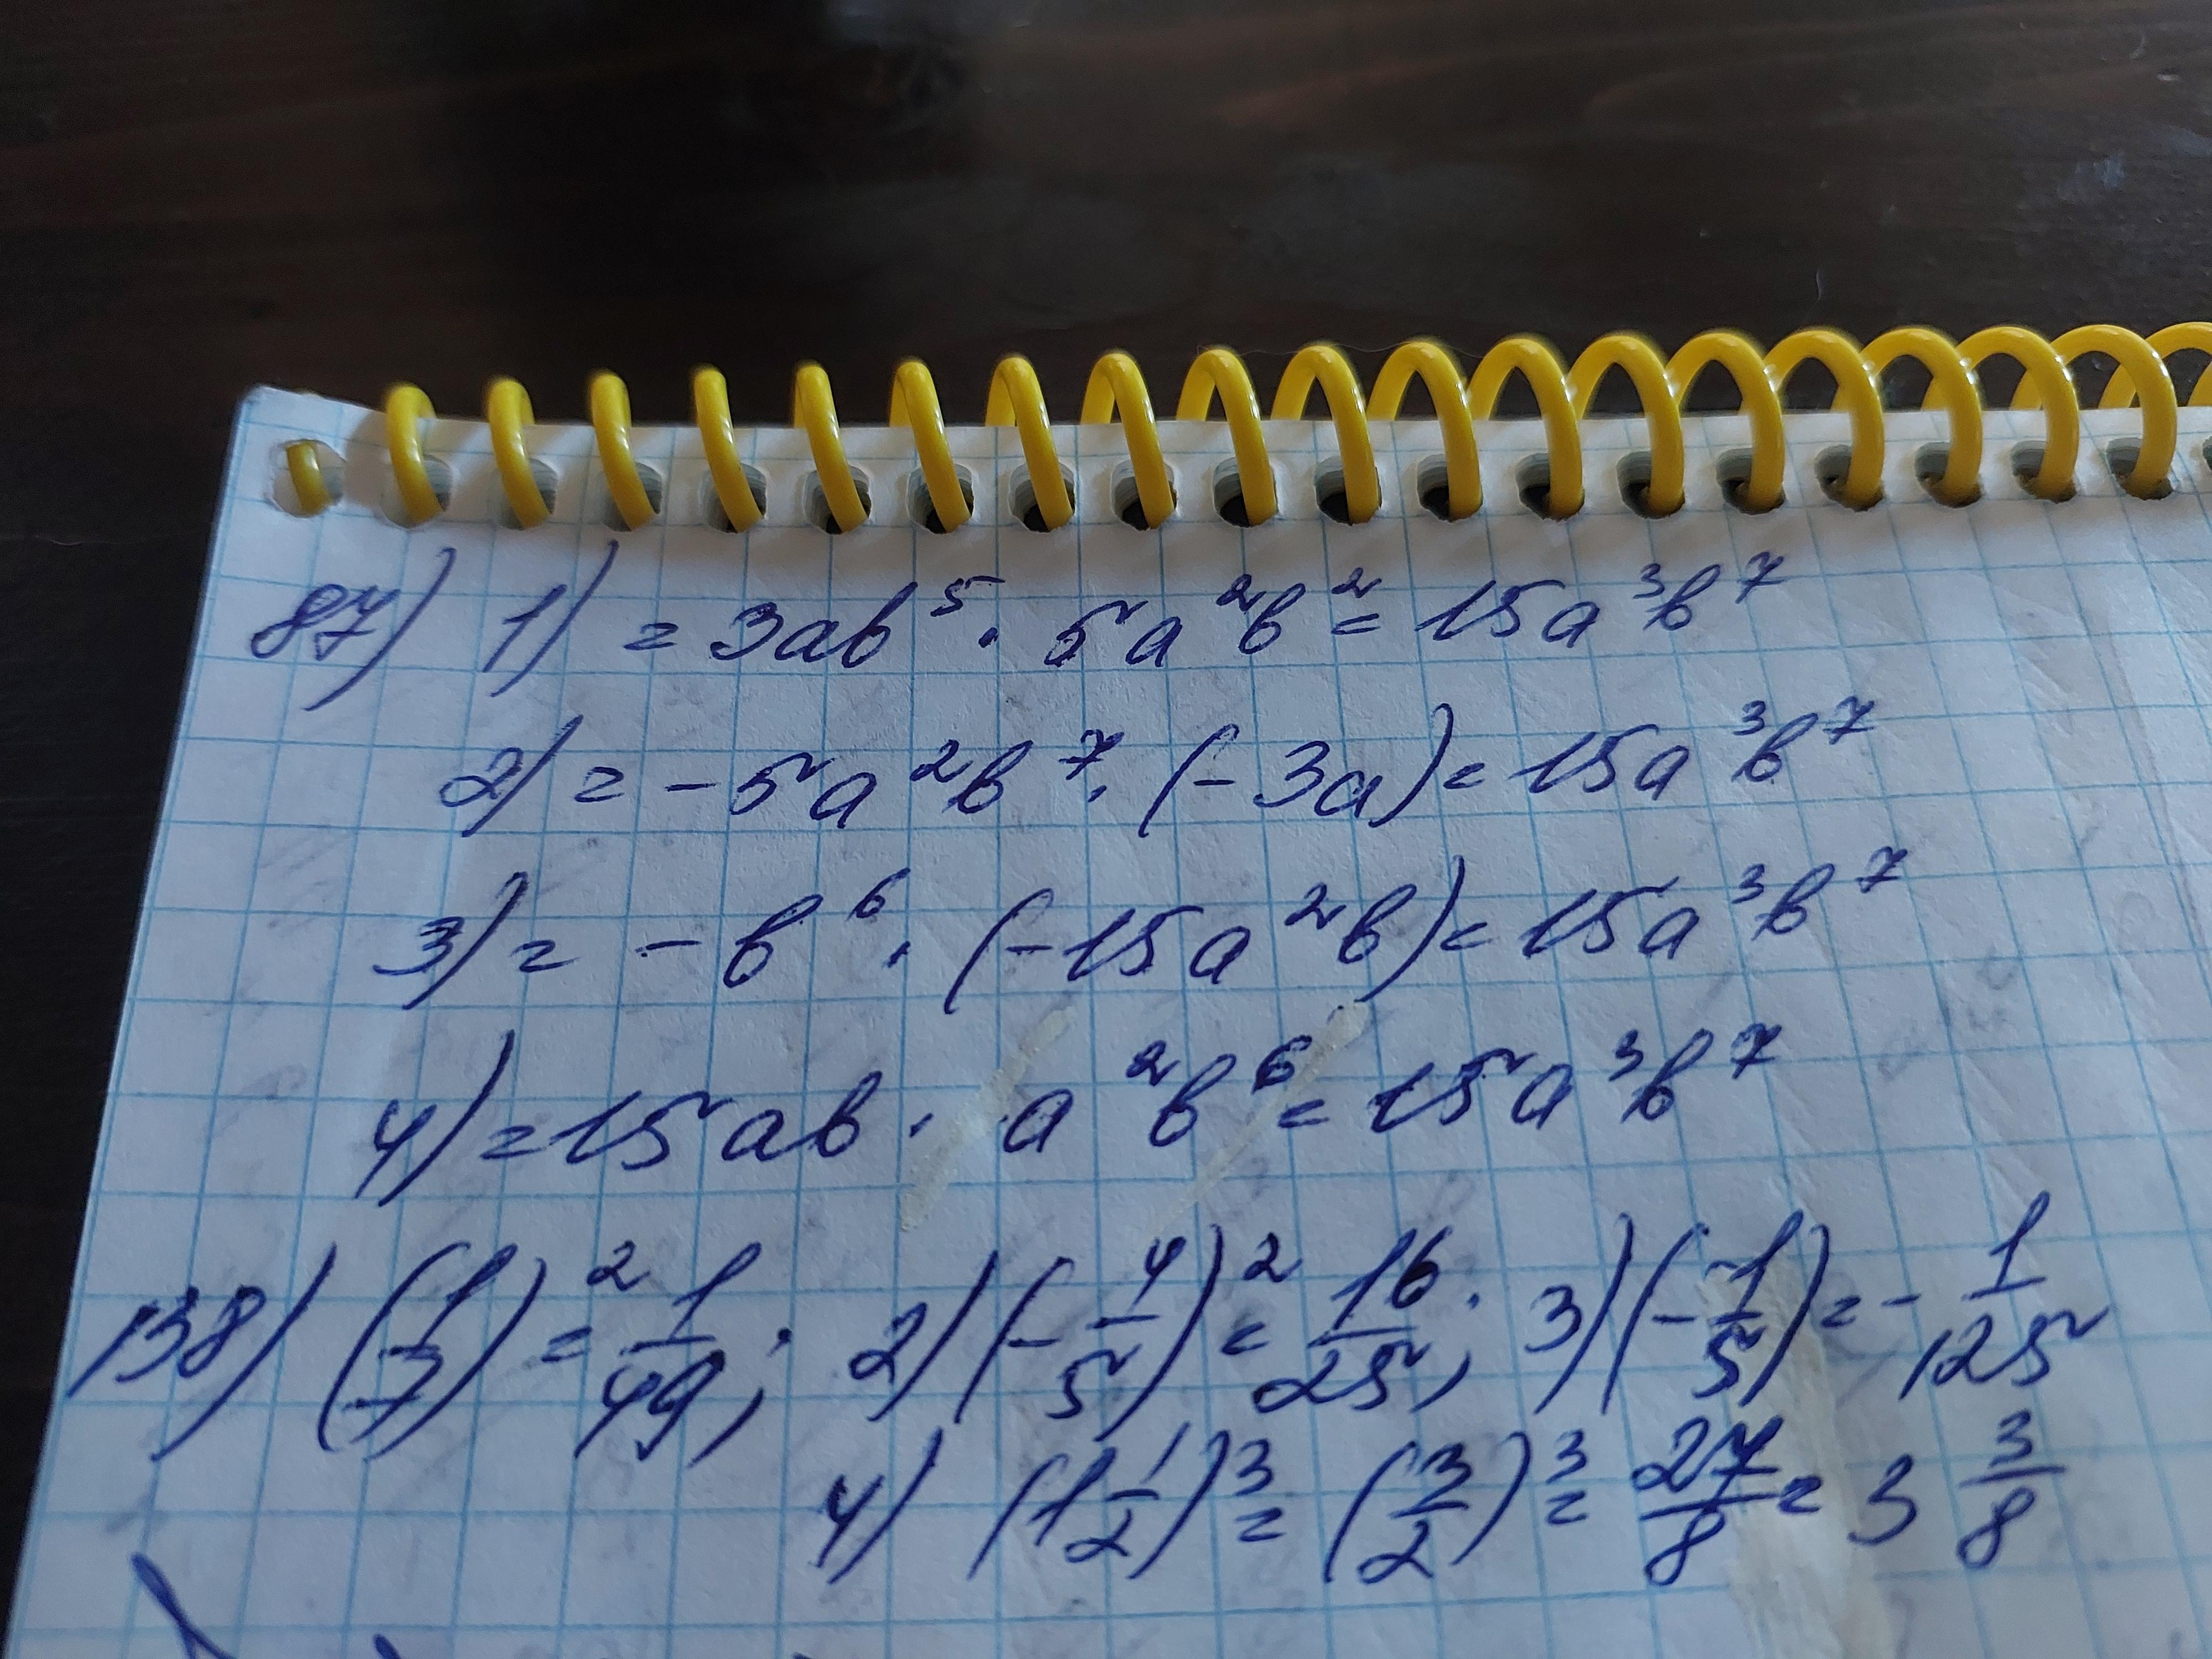 87) 1) = 3ab⁵ · 5a²b² = 15a³b⁷
2) = -5a²b⁷ · (-3a) = 15a³b⁷
3) = -b⁶ · (-15a²b) = 15a³b⁷
4) = 15ab · a²b⁶ = 15a³b⁷
138) (1/7)² = 1/49; 2) (-4/5)² = 16/25; 3) (-1/5) = -1/125
4) (1 1/2)³ = (3/2)³ = 27/8 = 3 3/8